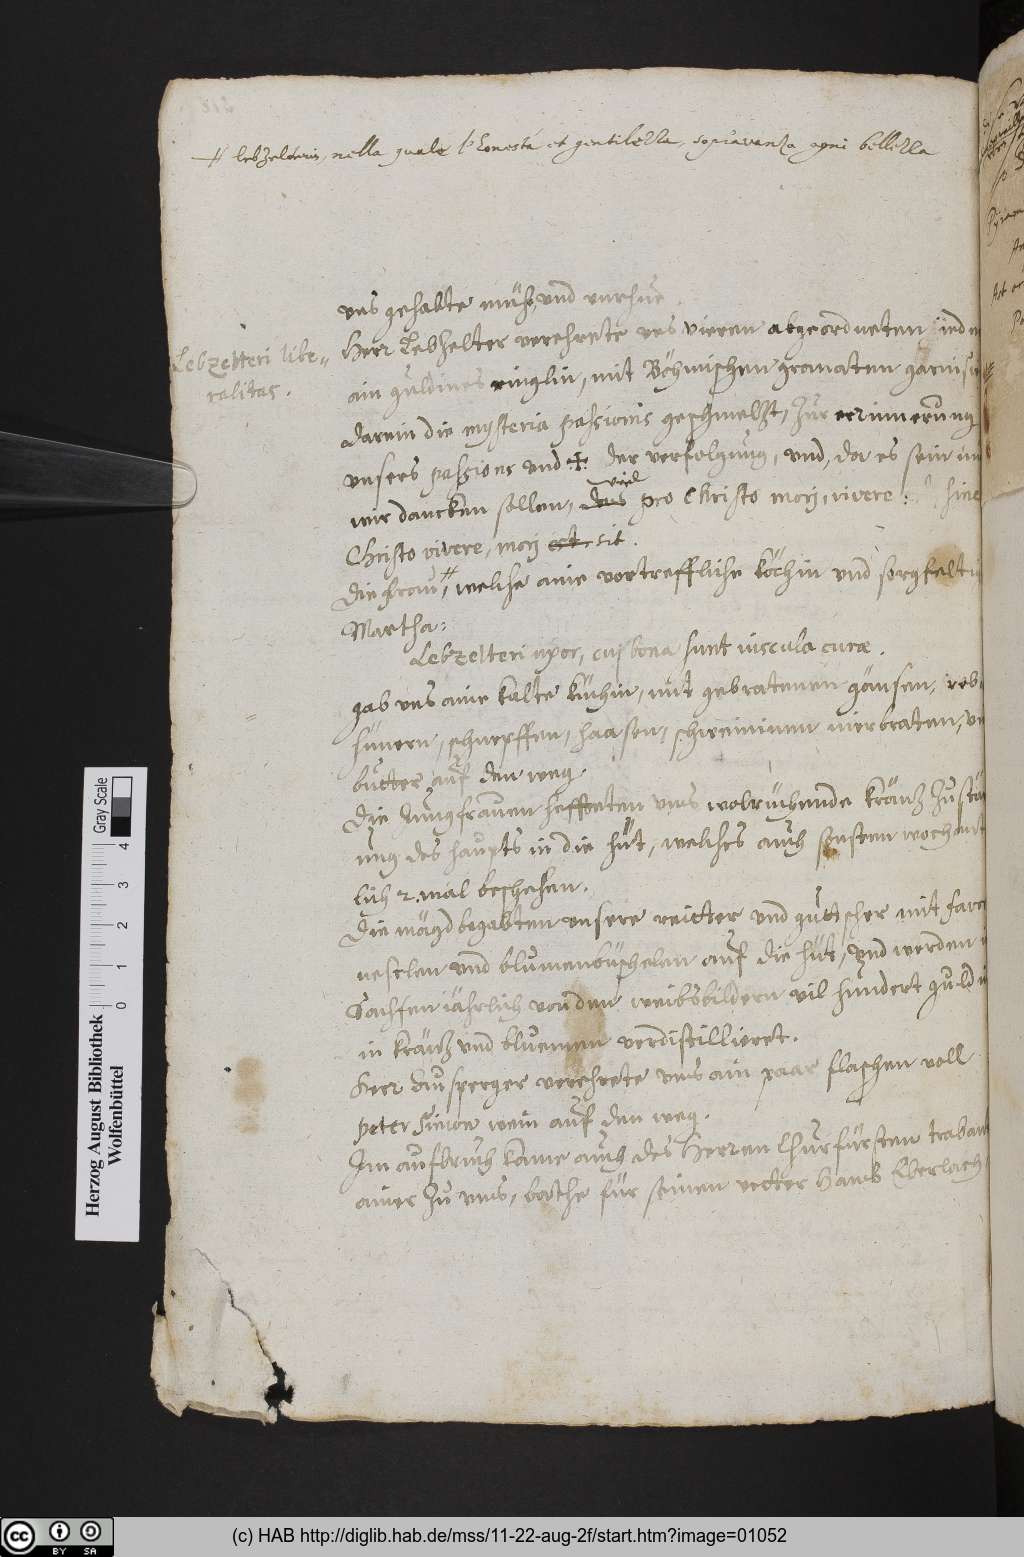 # lebzelterin, nella quale l'honestà et gentilezza, sopravanza ogni bellezza
uns gehabte mühe, und unruhe.
Lebzelteri libe-
ralitas.
Herr Lebzelter verehrete uns vieren abgeordneten
ain guldines ringlin, mit Böhmischen granaten
darein die mysteria passionis geschmeltzt, zur erinnerung
unsers passions und ✠ der verfolgung, und, da es sein
wir dancken sollen, das pro Christo morj, vivere: sine
Christo vivere, morj est sit.
Die frau, # welche aine vortreffliche köchin und sorgfeltig
Martha:
Lebzelteri uxor, cuj bona sunt viscula curæ.
gab uns aine kalte küchin, mit gebratenen gänsen, reb-
hünern, schnepffen, haasen, schweininen nierbraten,
butter auf den weg.
Die Jungfrauen heffteten uns wolrüchende kräntz zu
ung des haupts in die hüt, welches auch sonsten wochent-
lich 2. mal beschehen.
Die mägd begabten unsere reitter und gutscher mit
nestelen und blumenbüschelen auf die hüt, und werden
Sachsen jährlich von den weibsbildern vil hundert guld
in kräntz und bluemen verdistilliert.
Herr verehrete uns ain paar flaschen voll
peter Simon wein auf den weg.
Im aufbruch kame auch des Herren Churfürsten traban
ainer zu uns, bathe für seinen vetter Hans Eberlach
Herzog August Bibliothek
Wolfenbüttel
Gray Scale
0 1 2 3 4
cc BY SA
(c) HAB http://diglib.hab.de/mss/11-22-aug-2f/start.htm?image=01052